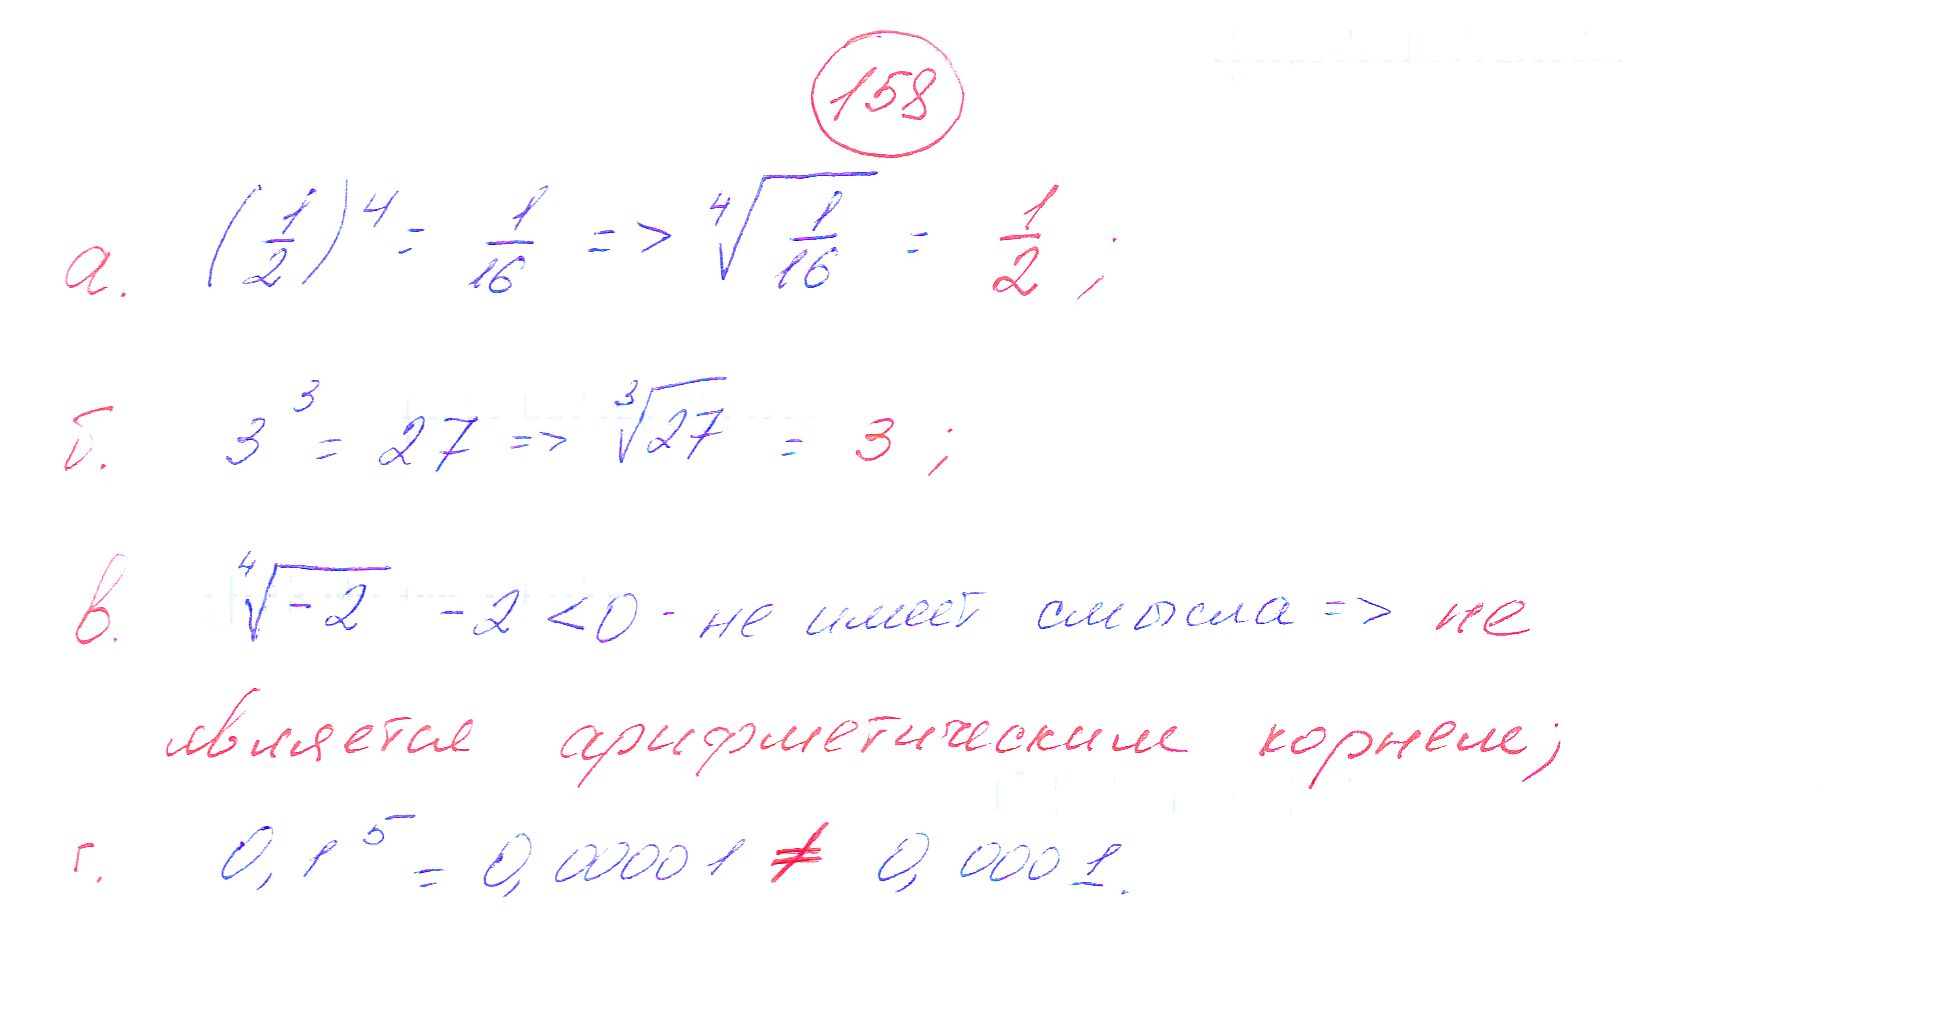 158
а. (1/2)^4 = 1/16 => ⁴√(1/16) = 1/2 ;
б. 3^3 = 27 => ³√27 = 3 ;
в. ⁴√-2 -2 < 0 - не имеет смысла => не
является арифметическим корнем;
г. 0,1^5 = 0,00001 ≠ 0,0001.